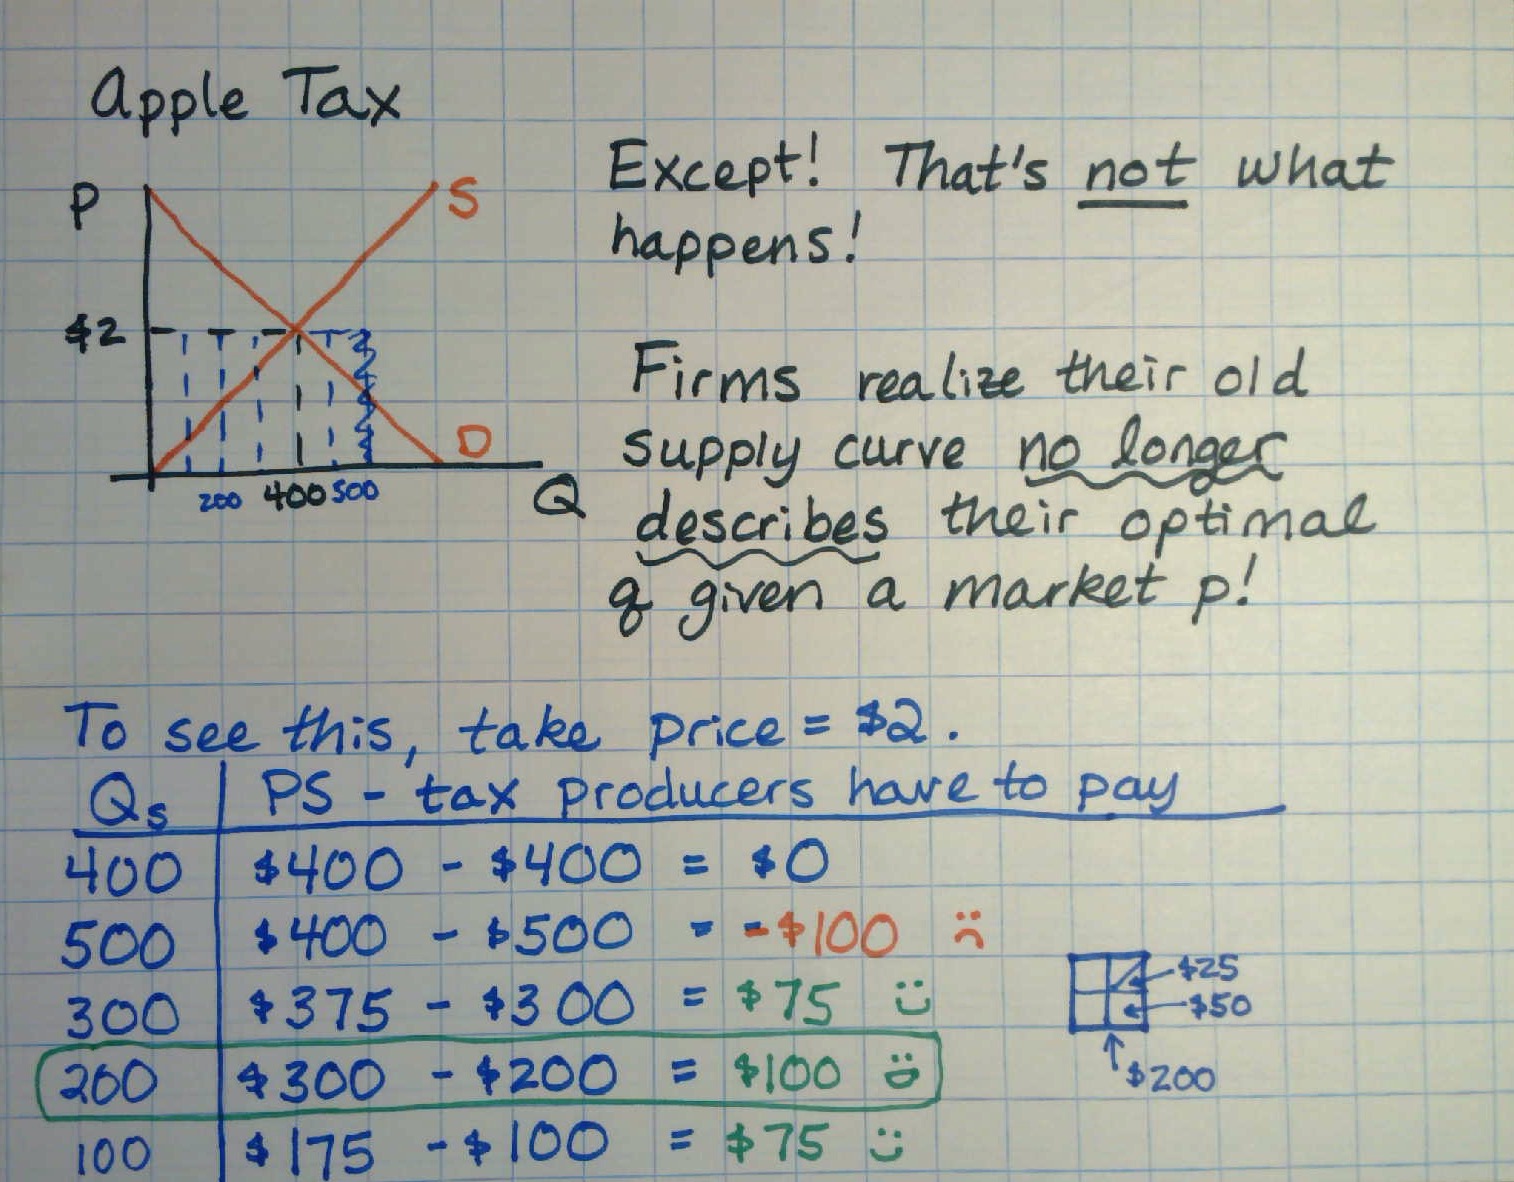 Apple Tax
P
S
$2
D
200 400 500
Q
Except! That's not what
happens!
Firms realize their old
supply curve no longer
describes their optimal
q given a market p!
To see this, take price = $2.
Qs PS - tax producers have to pay
400 $400 - $400 = $0
500 $400 - $500 = -$100
300 $375 - $300 = $75
200 $300 - $200 = $100
100 $175 - $100 = $75
$25
$50
$200